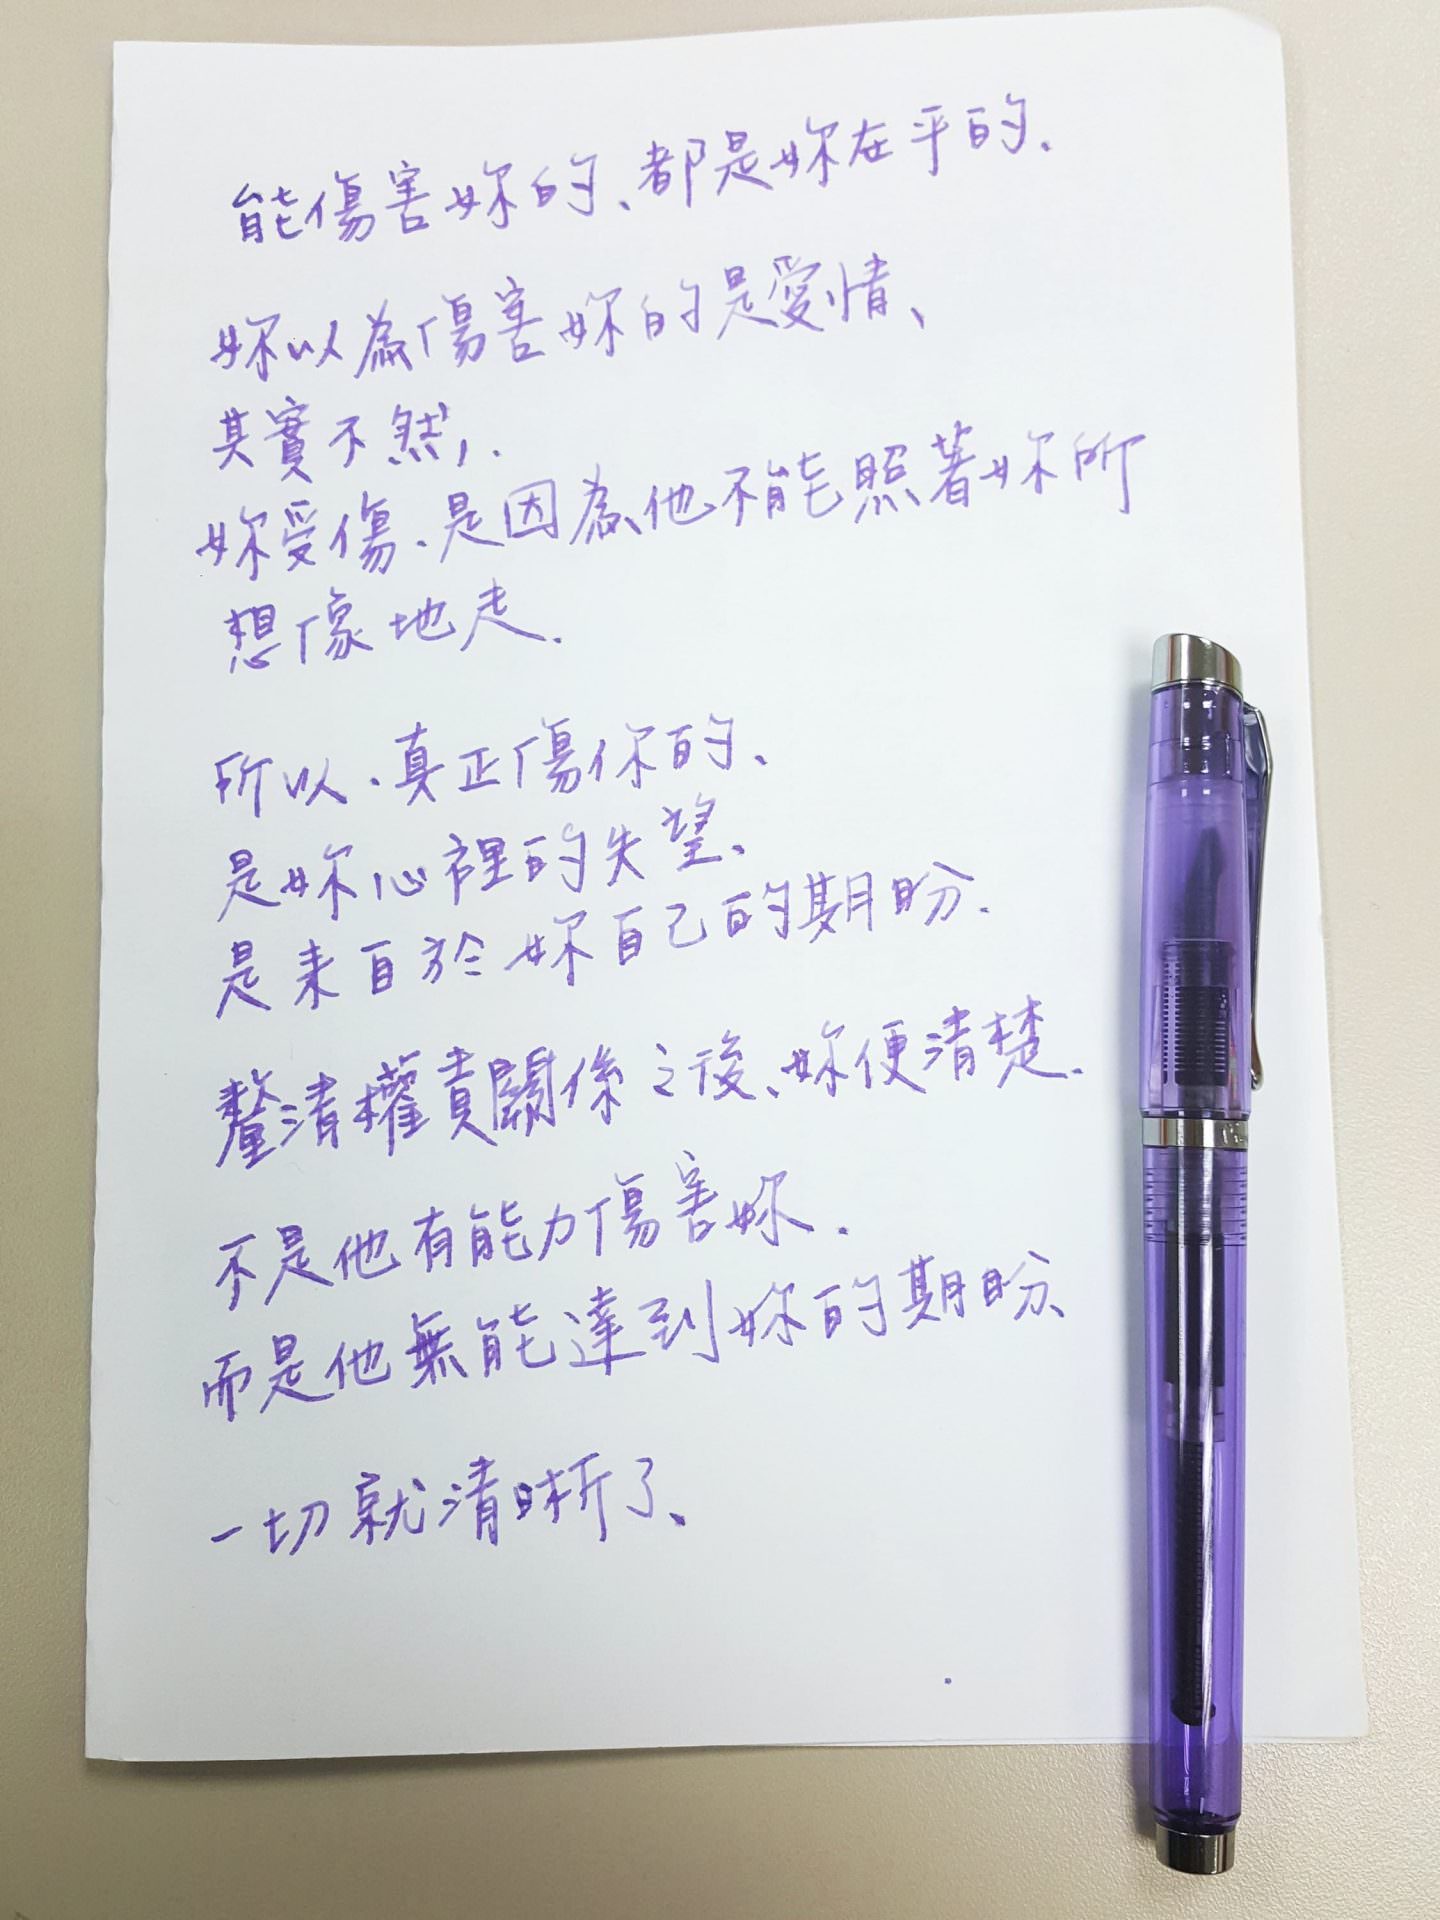 能傷害妳的、都是妳在乎的、
妳以為傷害妳的是愛情、
其實不然,.
妳受傷.是因為他不能照著妳所
想像地走.
所以.真正傷你的、
是妳心裡的失望、
是來自於妳自己的期盼.
釐清權責關係之後、妳便清楚.
不是他有能力傷害妳.
而是他無能達到妳的期盼、
一切就清晰了、